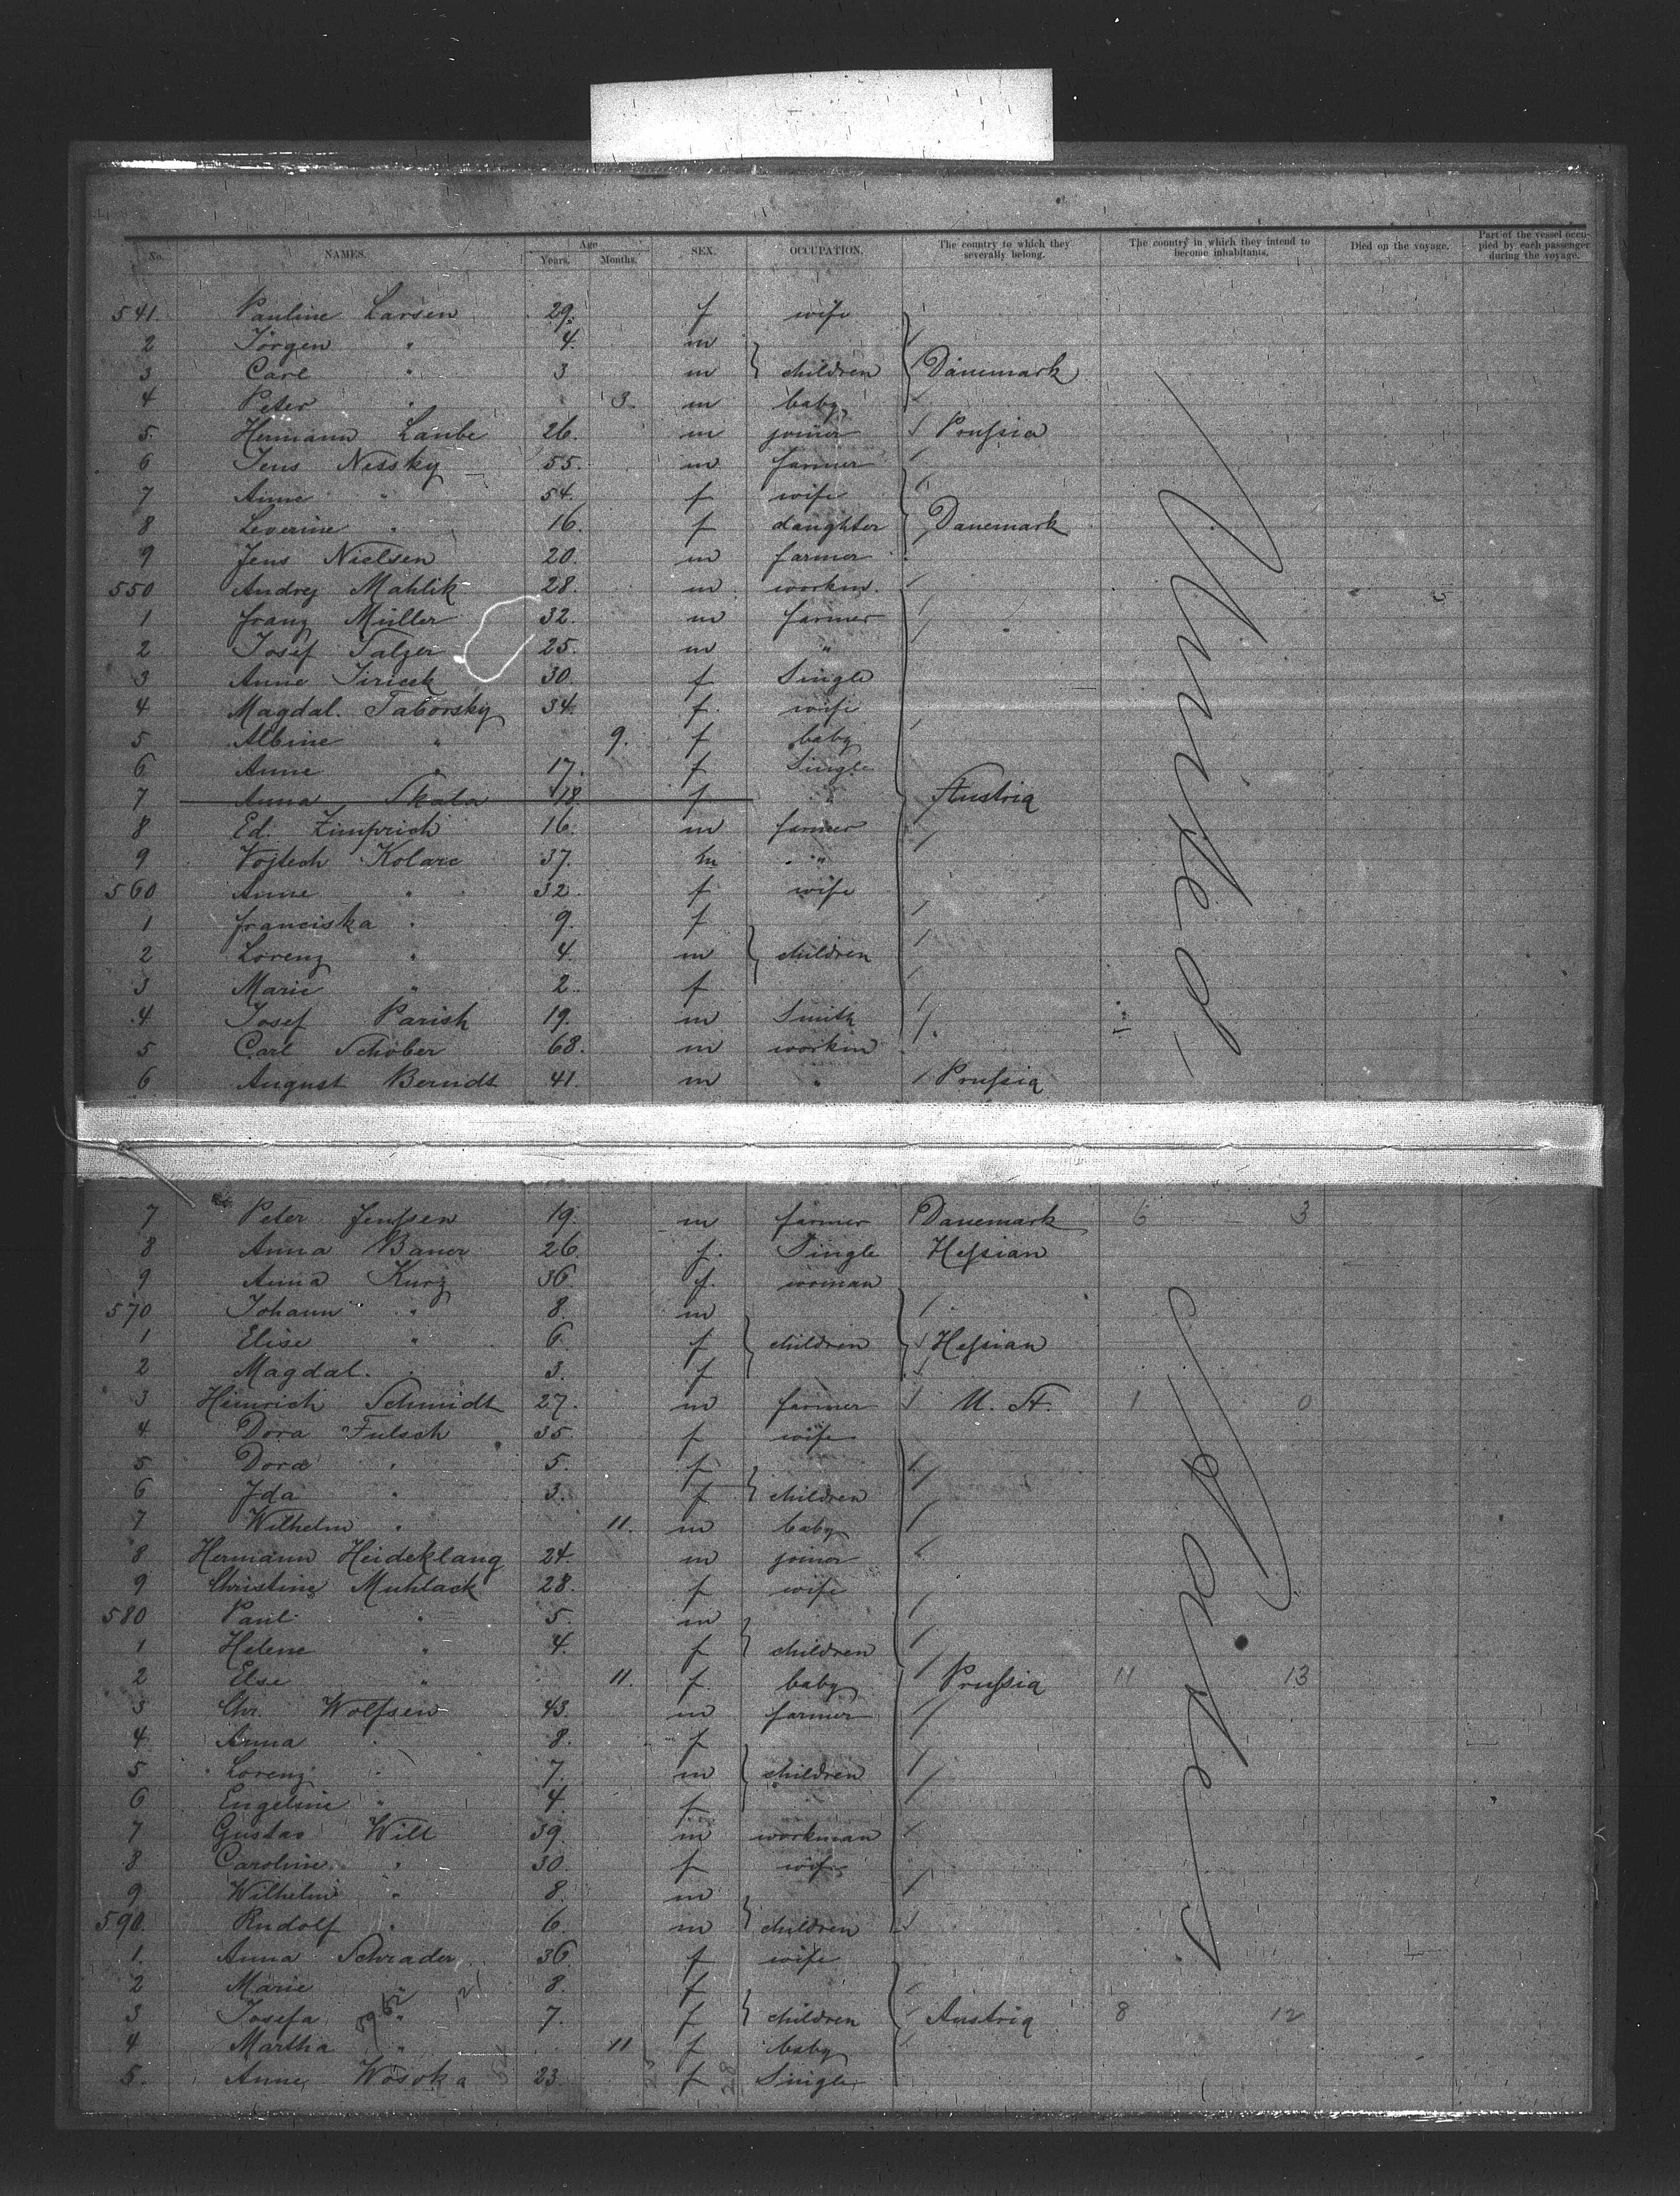 No. NAMES. Age Years. Months. SEX. OCCUPATION. The country to which they severally belong. The country in which they intend to become inhabitants. Died on the voyage. Part of the vessel occupied by each passenger during the voyage.
541. Pauline Larsen 29. f wife
2 Jörgen " 4. m
3 Carl " 3 m children Dänemark
4 Peter " 3. m baby
5. Hermann Laube 26. m joiner Prussia
6 Jens Nessky 55. m farmer
7 Anne " 54. f wife
8 Severine " 16. f daughter Danemark
9 Jens Nielsen 20. m farmer
550 Andrej Mahlik 28. m workm.
1 Franz Müller 32. m farmer
2 Josef Talzer 25. m "
3 Anne Jiricek 30. f Single
4 Magdal. Taborsky 34. f. wife
5 Albine " 9. f baby
6 Anne " 17. f Single
7 Anna Skala 18 f " Austria
8 Ed. Zimprich 16. m farmer
9 Vojtech Kolarc 37. m "
560 Anne " 32. f wife
1 Franciska " 9. f
2 Lorenz " 4. m children
3 Marie " 2. f
4 Josef Parish 19. m Smith
5 Carl Schober 68. m workm
6 August Berndt 41. m " Prussia
7 Peter Jenssen 19. m farmer Danemark 6 3
8 Anna Bauer 26. f. Single Hessian
9 Anna Kurz 36. f. woman
570 Johann " 8. m
1 Elise " 6. f children Hessian
2 Magdal. " 3. f
3 Heinrich Schmidt 27. m farmer U. St. 1 0
4 Dora Fulsch 35. f wife
5 Dora " 5. f
6 Ida " 3. f children
7 Wilhelm " 11. m baby
8 Hermann Heideklang 24. m joiner
9 Christine Muhlack 28. f wife
580 Paul " 5. m
1 Helene " 4. f children
2 Else " 11. f baby Prussia 11 13
3 Chr. Wolfsen 43. m farmer
4 Anna " 8. f
5 Lorenz " 7. m children
6 Engeline " 4. f
7 Gustav Will 39. m workman
8 Caroline " 30. f wife
9 Wilhelm " 8. m
590. Rudolf " 6. m children
1. Anna Schrader 36 f wife
2 Marie " 8. f
3 Josefa " 7. f children Austria 8 12
4 Martha " 11 f baby
5. Anne Wosoka 23 f Single